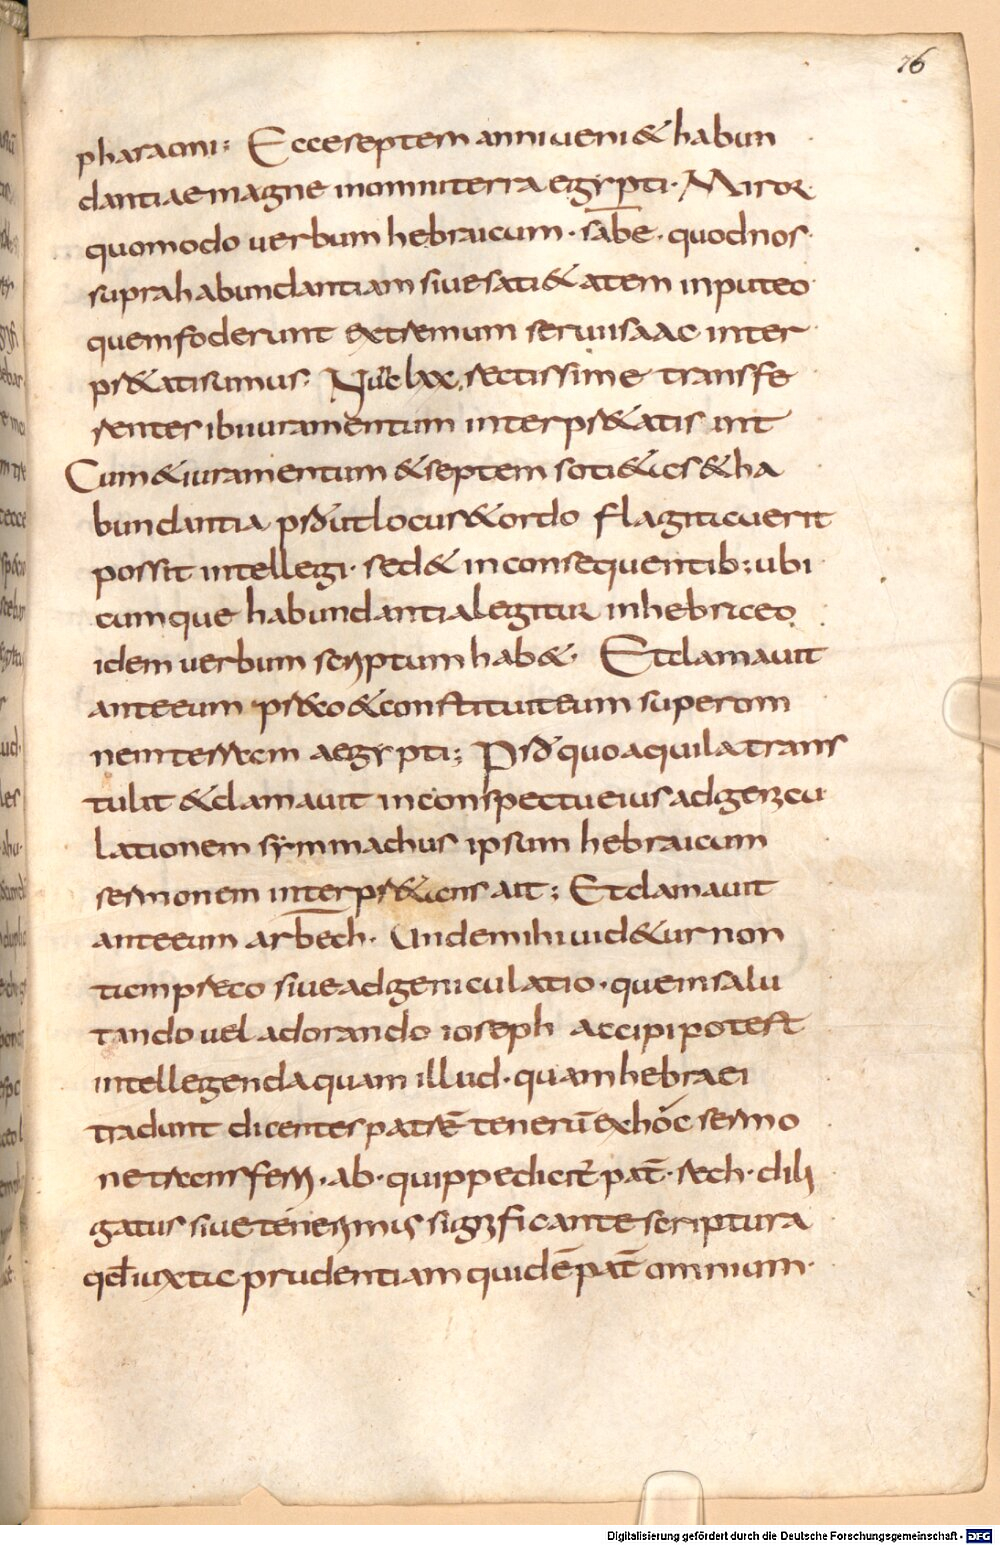 76
pharaoni; Ecce septem anni veni& habun
dantiae magne in omni terra egypti. Miror
quomodo verbum hebraicum. sabe. quod nos
supra habundantiam sive sati&atem in puteo
quem foderunt extremum servi isaac inter
pr&ati sumus. Nunc lxx rectissime transfe
rentes ibi iuramentum interpr&ati sint
Cum & iuramentum & septem soti&as & ha
bundantia pro ut locus & ordo flagitaverit
possit intellegi. sed & in consequentib; ubi
cumque habundantia legitur in hebraeo
idem verbum scriptum hab&. Et clamavit
ante eum praeco & constituit eum super om
nem terram aegypti; Pro quo aquila trans
tulit & clamavit in conspectu eius adgenicu
lationem symmachus ipsum hebraicum
sermonem interpr&ans ait; Et clamavit
ante eum arbech. Unde mihi vid&ur non
tam praeco sive adgeniculatio. quem salu
tando vel adorando ioseph accipi potest
intellegenda quam illud. quam hebraei
tradunt dicentes patrē tenerū ex hoc sermo
ne transferri. ab. quippe dicit pat̄. rech. dili
gatus sive tenerrimis significante scriptura
qđ iuxta prudentiam quidē pat̄ omnium.
Digitalisierung gefördert durch die Deutsche Forschungsgemeinschaft - DFG